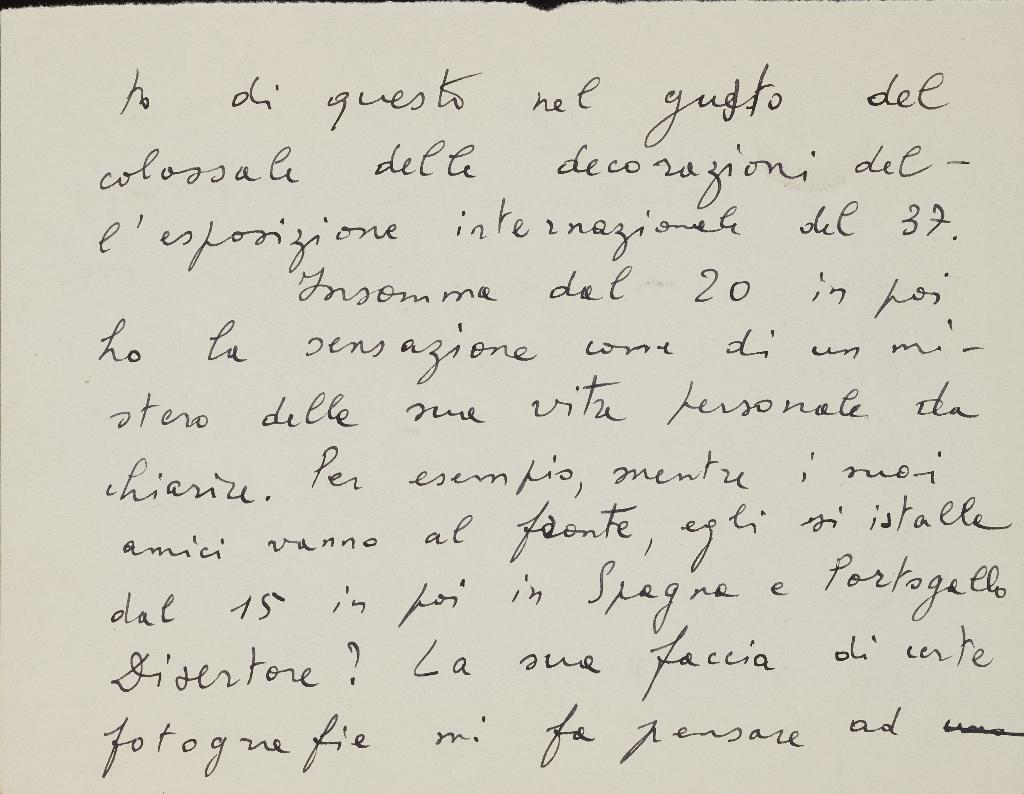 to di questo nel gusto del
colossale delle decorazioni del-
l'esposizione internazionale del 37.
Insomma dal 20 in poi
ho la sensazione come di un mi-
stero della sua vita personale da
chiarire. Per esempio, mentre i suoi
amici vanno al fronte, egli si istalla
dal 15 in poi in Spagna e Portogallo
Disertore? La sua faccia di certe
fotografie mi fa pensare ad